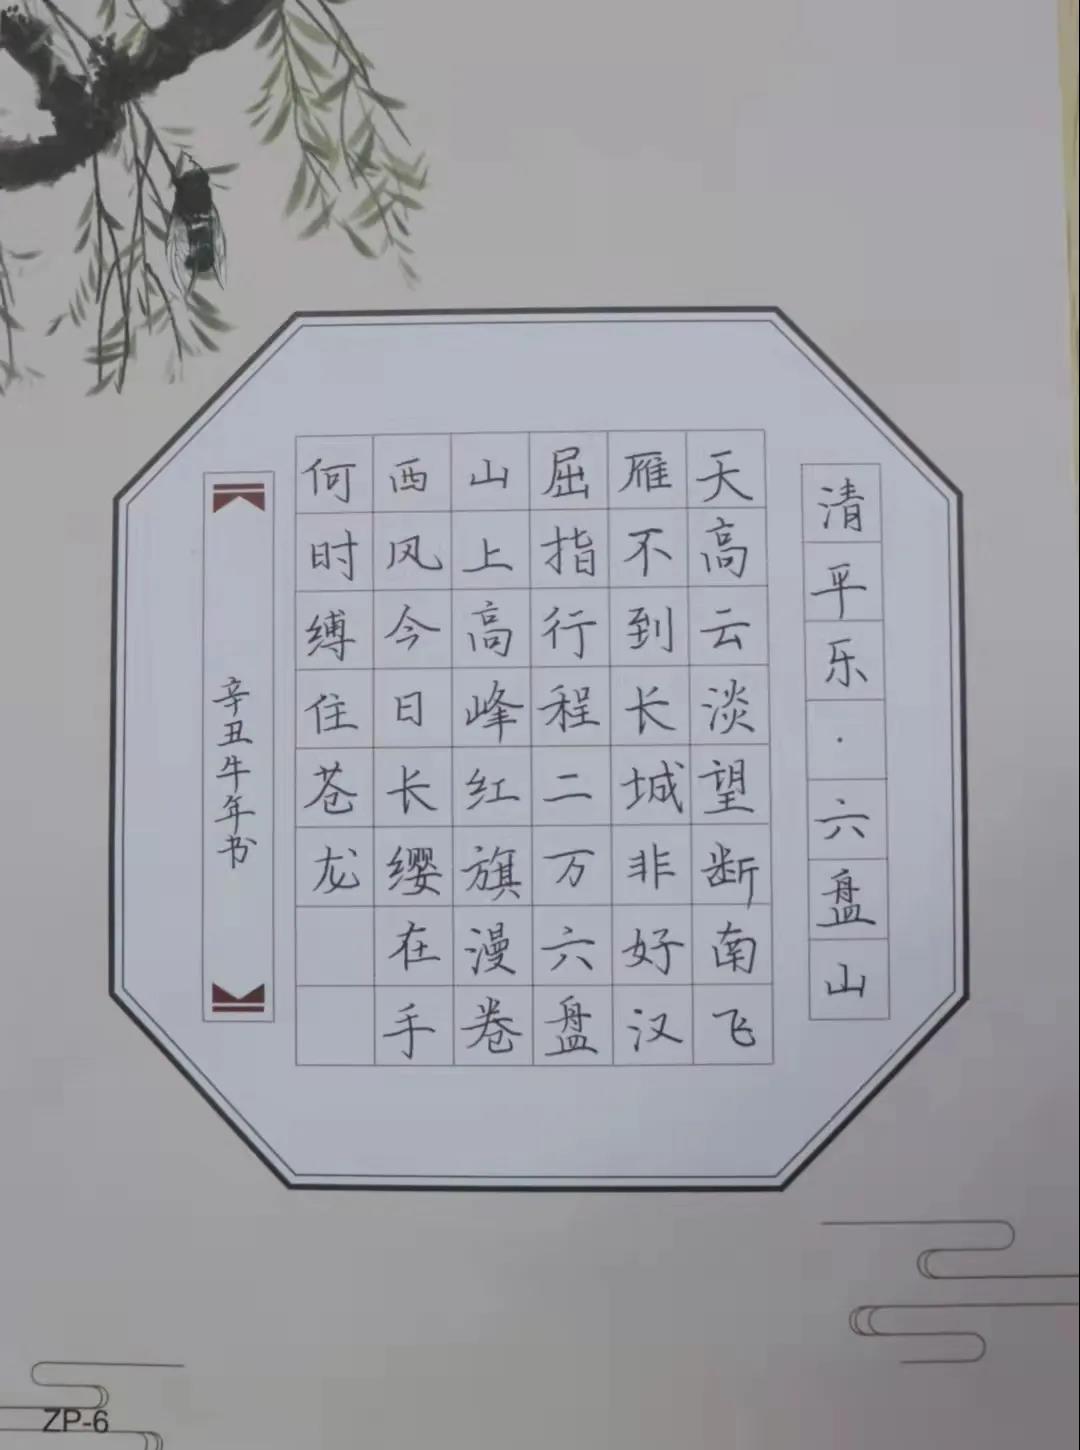 清平乐·六盘山
天高云淡望断南飞
雁不到长城非好汉
屈指行程二万六盘
山上高峰红旗漫卷
西风今日长缨在手
何时缚住苍龙
辛丑牛年书
ZP-6